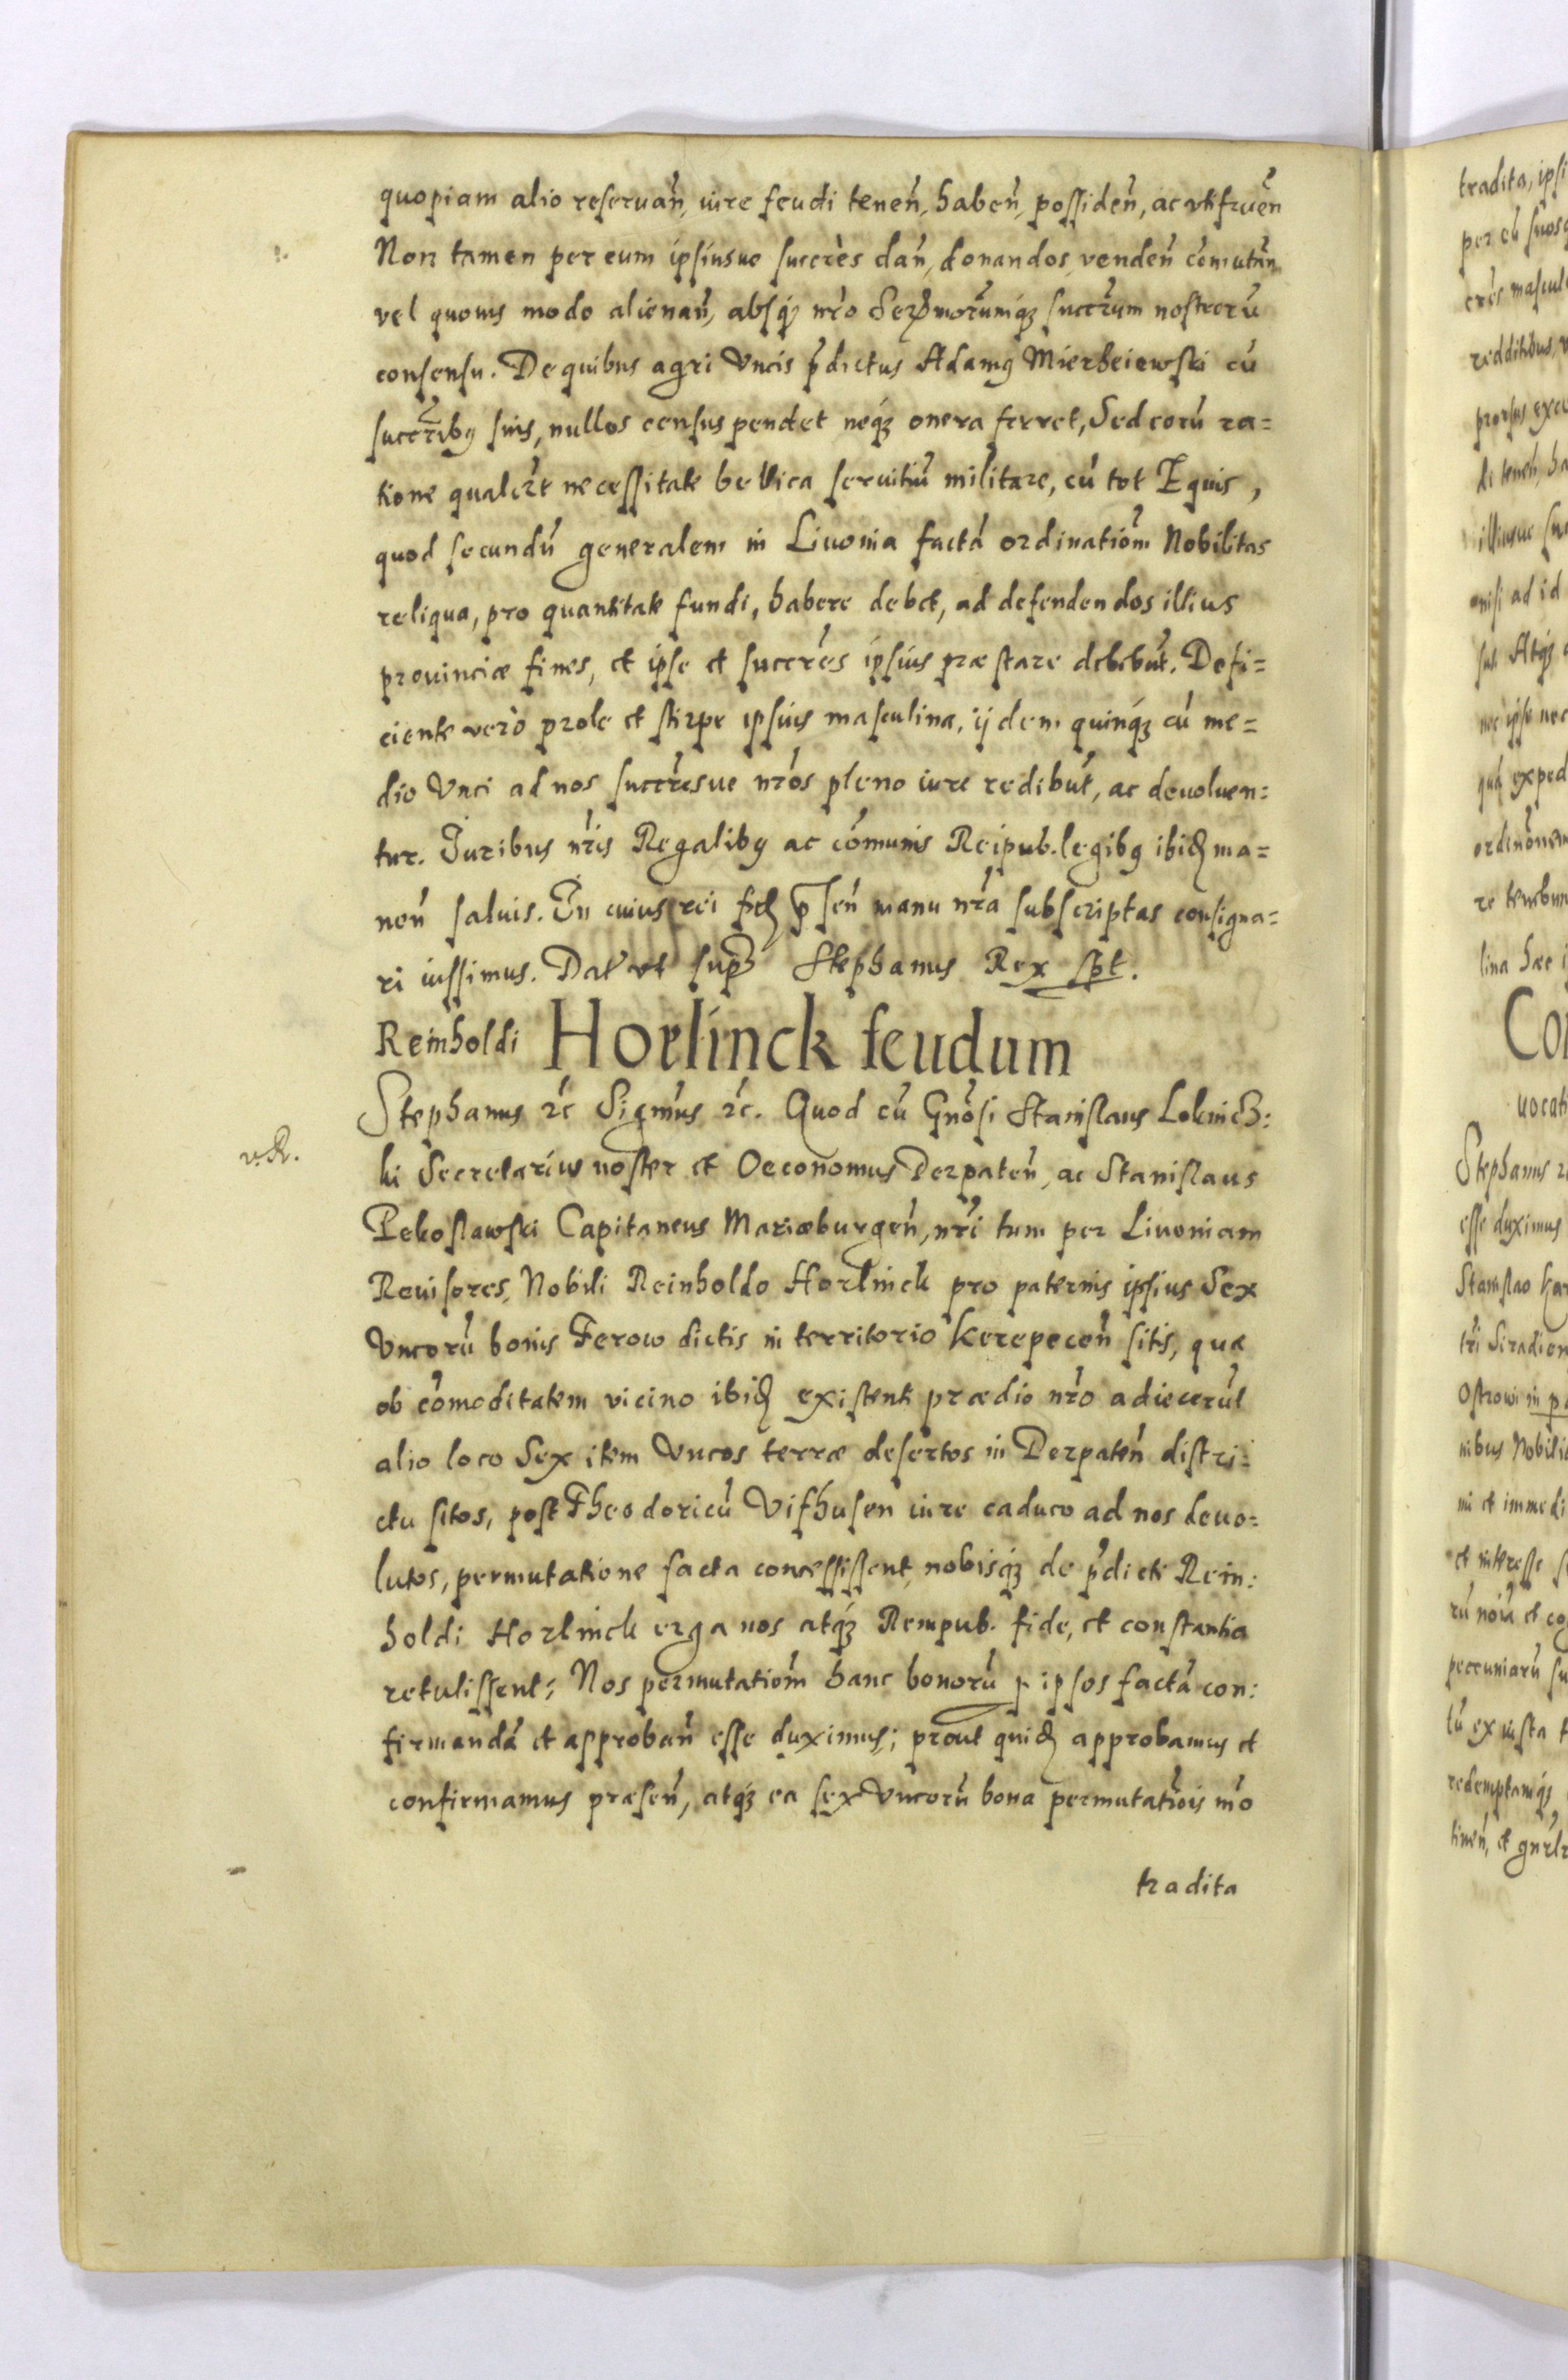 quopiam alio reseruan̄, iure feudi tenen̄, haben̄, possiden̄, ac vtifruen̄
Non tamen per eum ipsiusue succrēs dan̄, donandos, venden̄ com̄utan̄
vel quouis modo alienan̄, absq₃ nr̄o Ser̄morumq₃ succr̄um nostrorū
consensu. De quibus agri Vncis p̄dictus Adamꝰ Mierzeiewski cū
succr̄ibꝰ suis, nullos census pendet neq₃ onera ferret, Sed eorū ra=
tione qualert necessitate bellica seruitiū militare, cū tot Equis,
quod secundū generalem in Liuonia factā ordinatiōm Nobilitas
reliqua, pro quantitate fundi, habere debet, ad defendendos illius
prouinciæ fines, et ipse et succrēs ipsius præstare debebūt. Defi=
ciente verò prole et stirpe ipsius masculina, ijdem quinq₃ cū me=
dio Vnci ad nos succrēsue nr̄os pleno iure redibūt, ac deuoluen=
tur. Juribus nr̄is Regalibꝰ ac com̄unis Reipub. legibꝰ ibid̄ ma=
nen̄ saluis. In cuius rei fid̄ p̄sen̄ manu nr̄a subscriptas consigna=
ri iussimus. Dat̄ vt sup̄ Stephanus Rex sp̄t.
Reinholdi Horlinck feudum
Stephanus ꝛc̄ Sigm̄us ꝛc̄. Quod cū Gn̄osi Stanislaus Loknicz:
v. R.
ki Secretarius noster et Oeconomus Derpaten̄, ac Stanislaus
Pekoslawski Capitaneus Mariæburgen̄, nr̄i tum per Liuoniam
Reuisores, Nobili Reinholdo Horlinck pro paternis ipsius Sex
Vncorū bonis Ferow dictis in territorio Kerepecen̄ sitis, quæ
ob com̄oditatem vicino ibid̄ existenti prædio nr̄o adiecerūt
alio loco Sex item Vncos terræ desertos in Derpaten̄ distri=
ctu sitos, post Theodoricū Vifhusen iure caduco ad nos deuo=
lutos, permutatione facta concessissent, nobisq₃ de p̄dicti Rein:
holdi Horlinck erga nos atq₃ Rempub. fide, et constantia
retulissent; Nos permutatiōm hanc bonorū p ipsos factā con:
firmandā et approban̄ esse duximus; prout quid̄ approbamus et
confirmamus præsen̄, atq₃ ea sex Vncorū bona permutatiōis mō
tradita